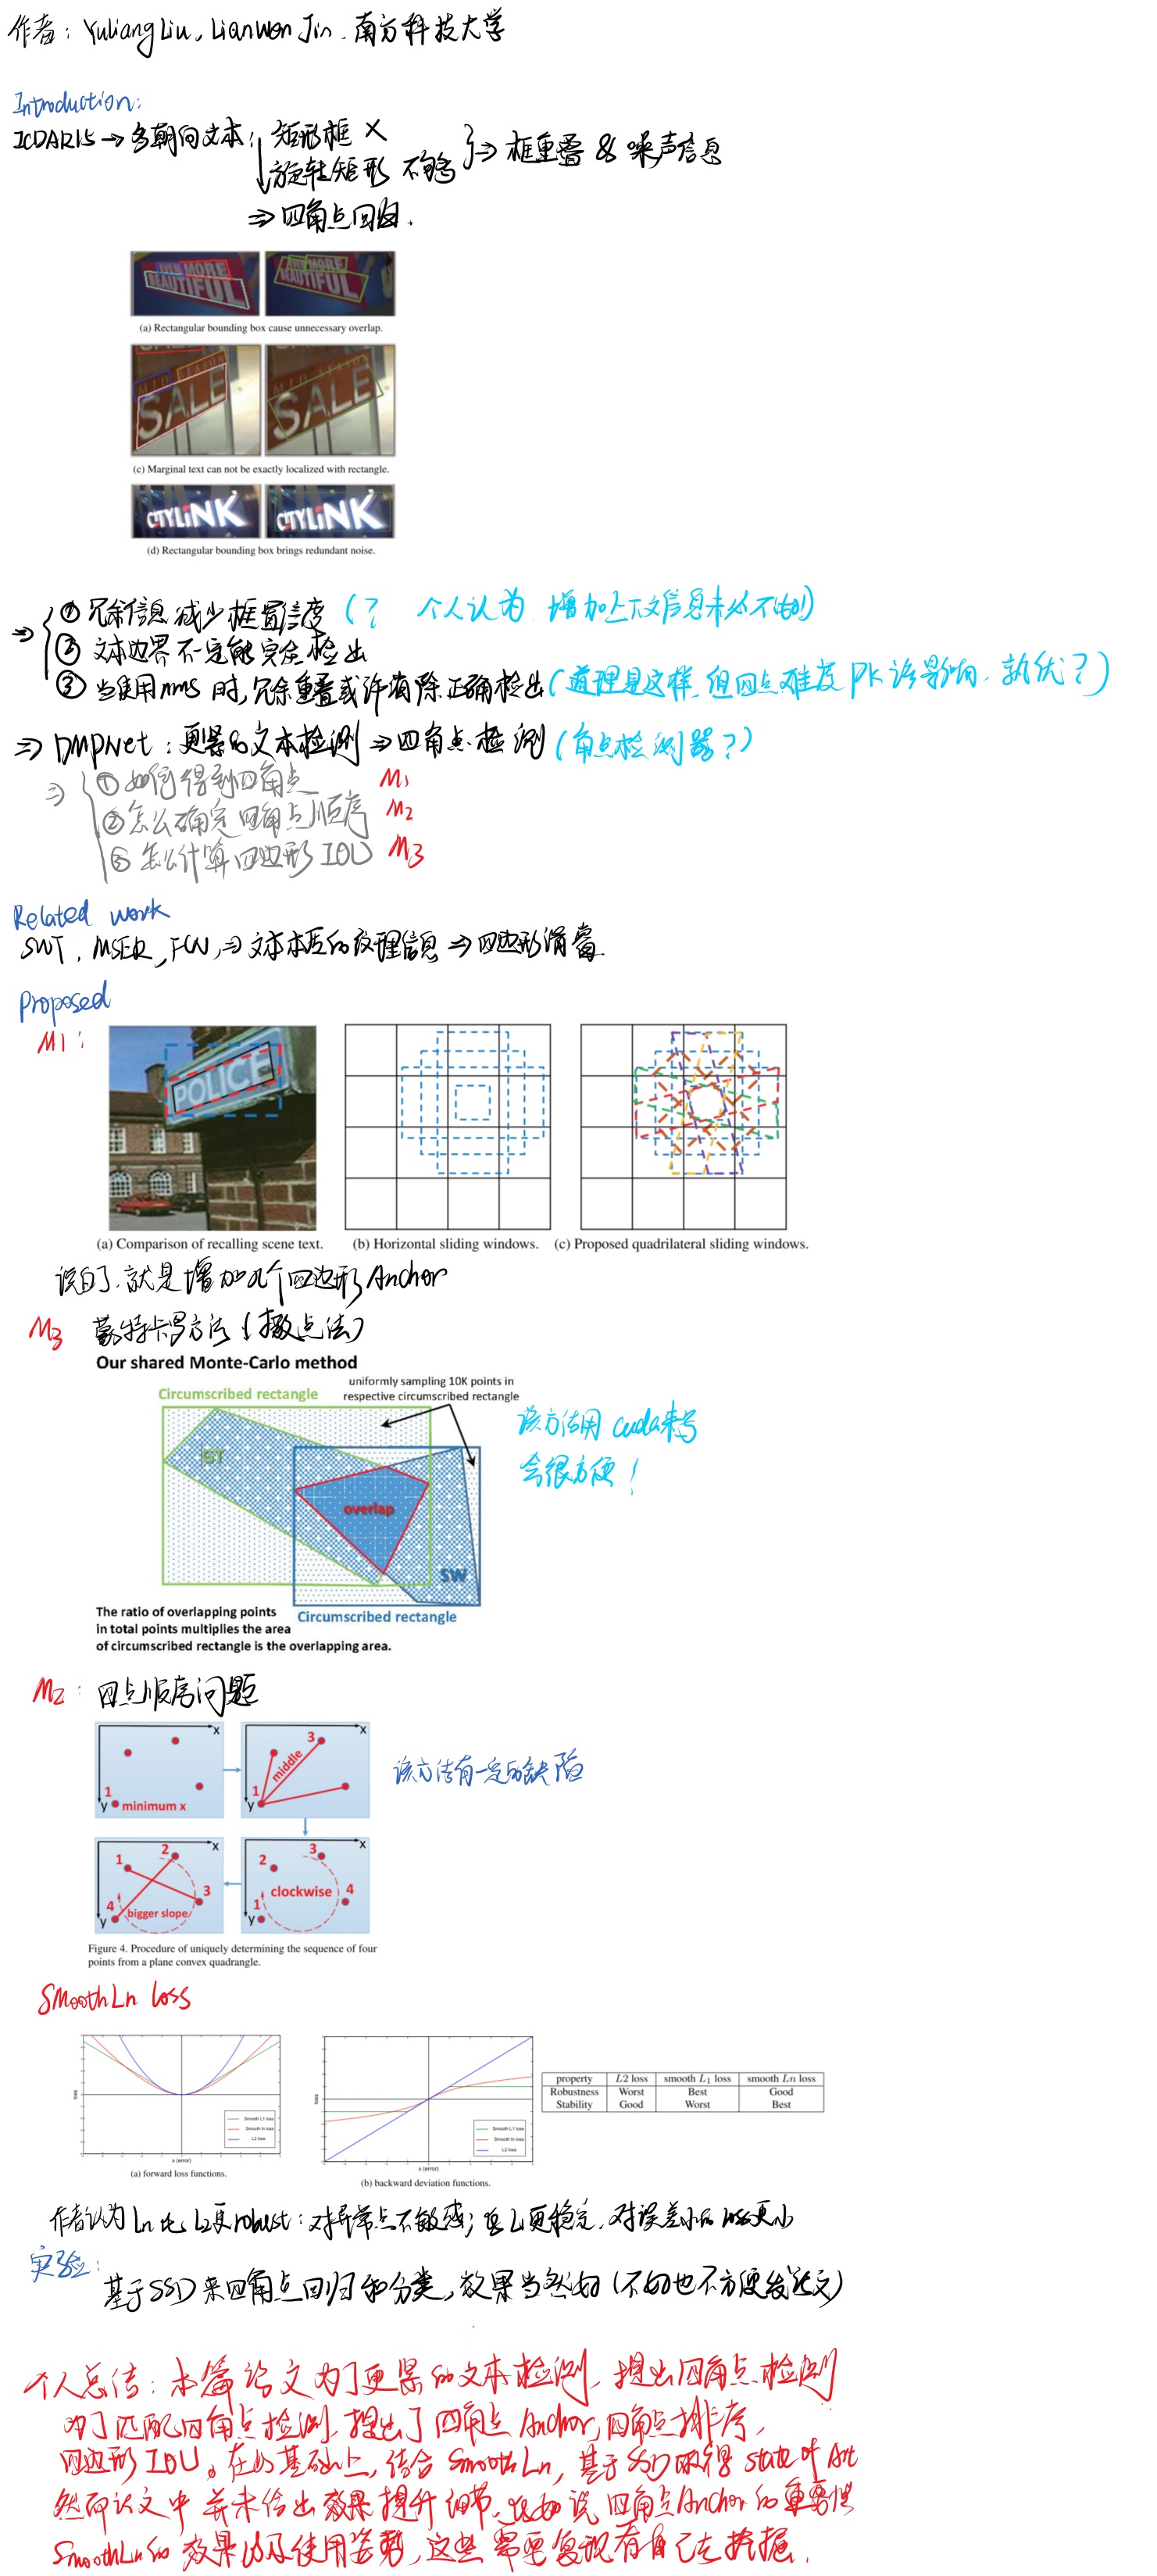 作者：Yuliang Liu, Lianwen Jin. 南方科技大学
Introduction:
ICDAR15→多朝向文本：矩形框 ×
旋转矩形 不够 ⇒ 框重叠 & 噪声信息
⇒ 四角点回归.
EVEN MORE
BEAUTIFUL
EVEN MORE
BEAUTIFUL
(a) Rectangular bounding box cause unnecessary overlap.
MID SEASON
SALE
SALE
(c) Marginal text can not be exactly localized with rectangle.
CITYLiNK
CITYLiNK
(d) Rectangular bounding box brings redundant noise.
⇒ ① 冗余信息减少框置信度 (? 个人认为 增加上下文信息未必不好)
② 文本边界不一定能完全检出
③ 当使用nms时,冗余重叠或许消除正确检出(道理是这样,但四点难度PK该影响,孰优?)
⇒ DMPNet：更紧的文本检测⇒四角点检测(角点检测器?)
⇒ ① 如何得到四角点 M1
② 怎么确定四角点顺序 M2
③ 怎么计算四边形 IOU M3
Related work
SWT, MSER, FCN,⇒文本本质的纹理信息⇒四边形滑窗
Proposed
M1:
POLICE
(a) Comparison of recalling scene text. (b) Horizontal sliding windows. (c) Proposed quadrilateral sliding windows.
说白了,就是增加几个四边形Anchor
M3 蒙特卡罗方法(撒点法)
Our shared Monte-Carlo method
uniformly sampling 10K points in
respective circumscribed rectangle
Circumscribed rectangle
GT
overlap
SW
该方法用cuda来写
会很方便!
The ratio of overlapping points
in total points multiplies the area
of circumscribed rectangle is the overlapping area.
Circumscribed rectangle
M2: 四点顺序问题
x
1
y minimum x
x
3
middle
1
y
该方法有一定的缺陷
x
2
1
3
4
bigger slope
y
x
3
2
clockwise 4
1
y
Figure 4. Procedure of uniquely determining the sequence of four
points from a plane convex quadrangle.
Smooth Ln loss
loss
Smooth L1 loss
Smooth ln loss
L2 loss
x (error)
(a) forward loss functions.
loss
Smooth L1 loss
Smooth ln loss
L2 loss
x (error)
(b) backward deviation functions.
property L2 loss smooth L1 loss smooth Ln loss
Robustness Worst Best Good
Stability Good Worst Best
作者认为Ln比L2更robust：对异常点不敏感;比L1更稳定,对误差小的loss更小
实验:
基于SSD来四角点回归和分类,效果当然好(不好也不方便发论文)
个人总结：本篇论文为了更紧的文本检测,提出四角点检测
为了匹配四角点检测,提出了四角点Anchor,四角点排序,
四边形IOU。在此基础上,结合SmoothLn,基于SSD取得state of Art
然而论文中并未给出效果提升细节,比如说四角点Anchor的重要性
SmoothLn的效果以及使用姿势,这些需要复现者自己去挖掘.